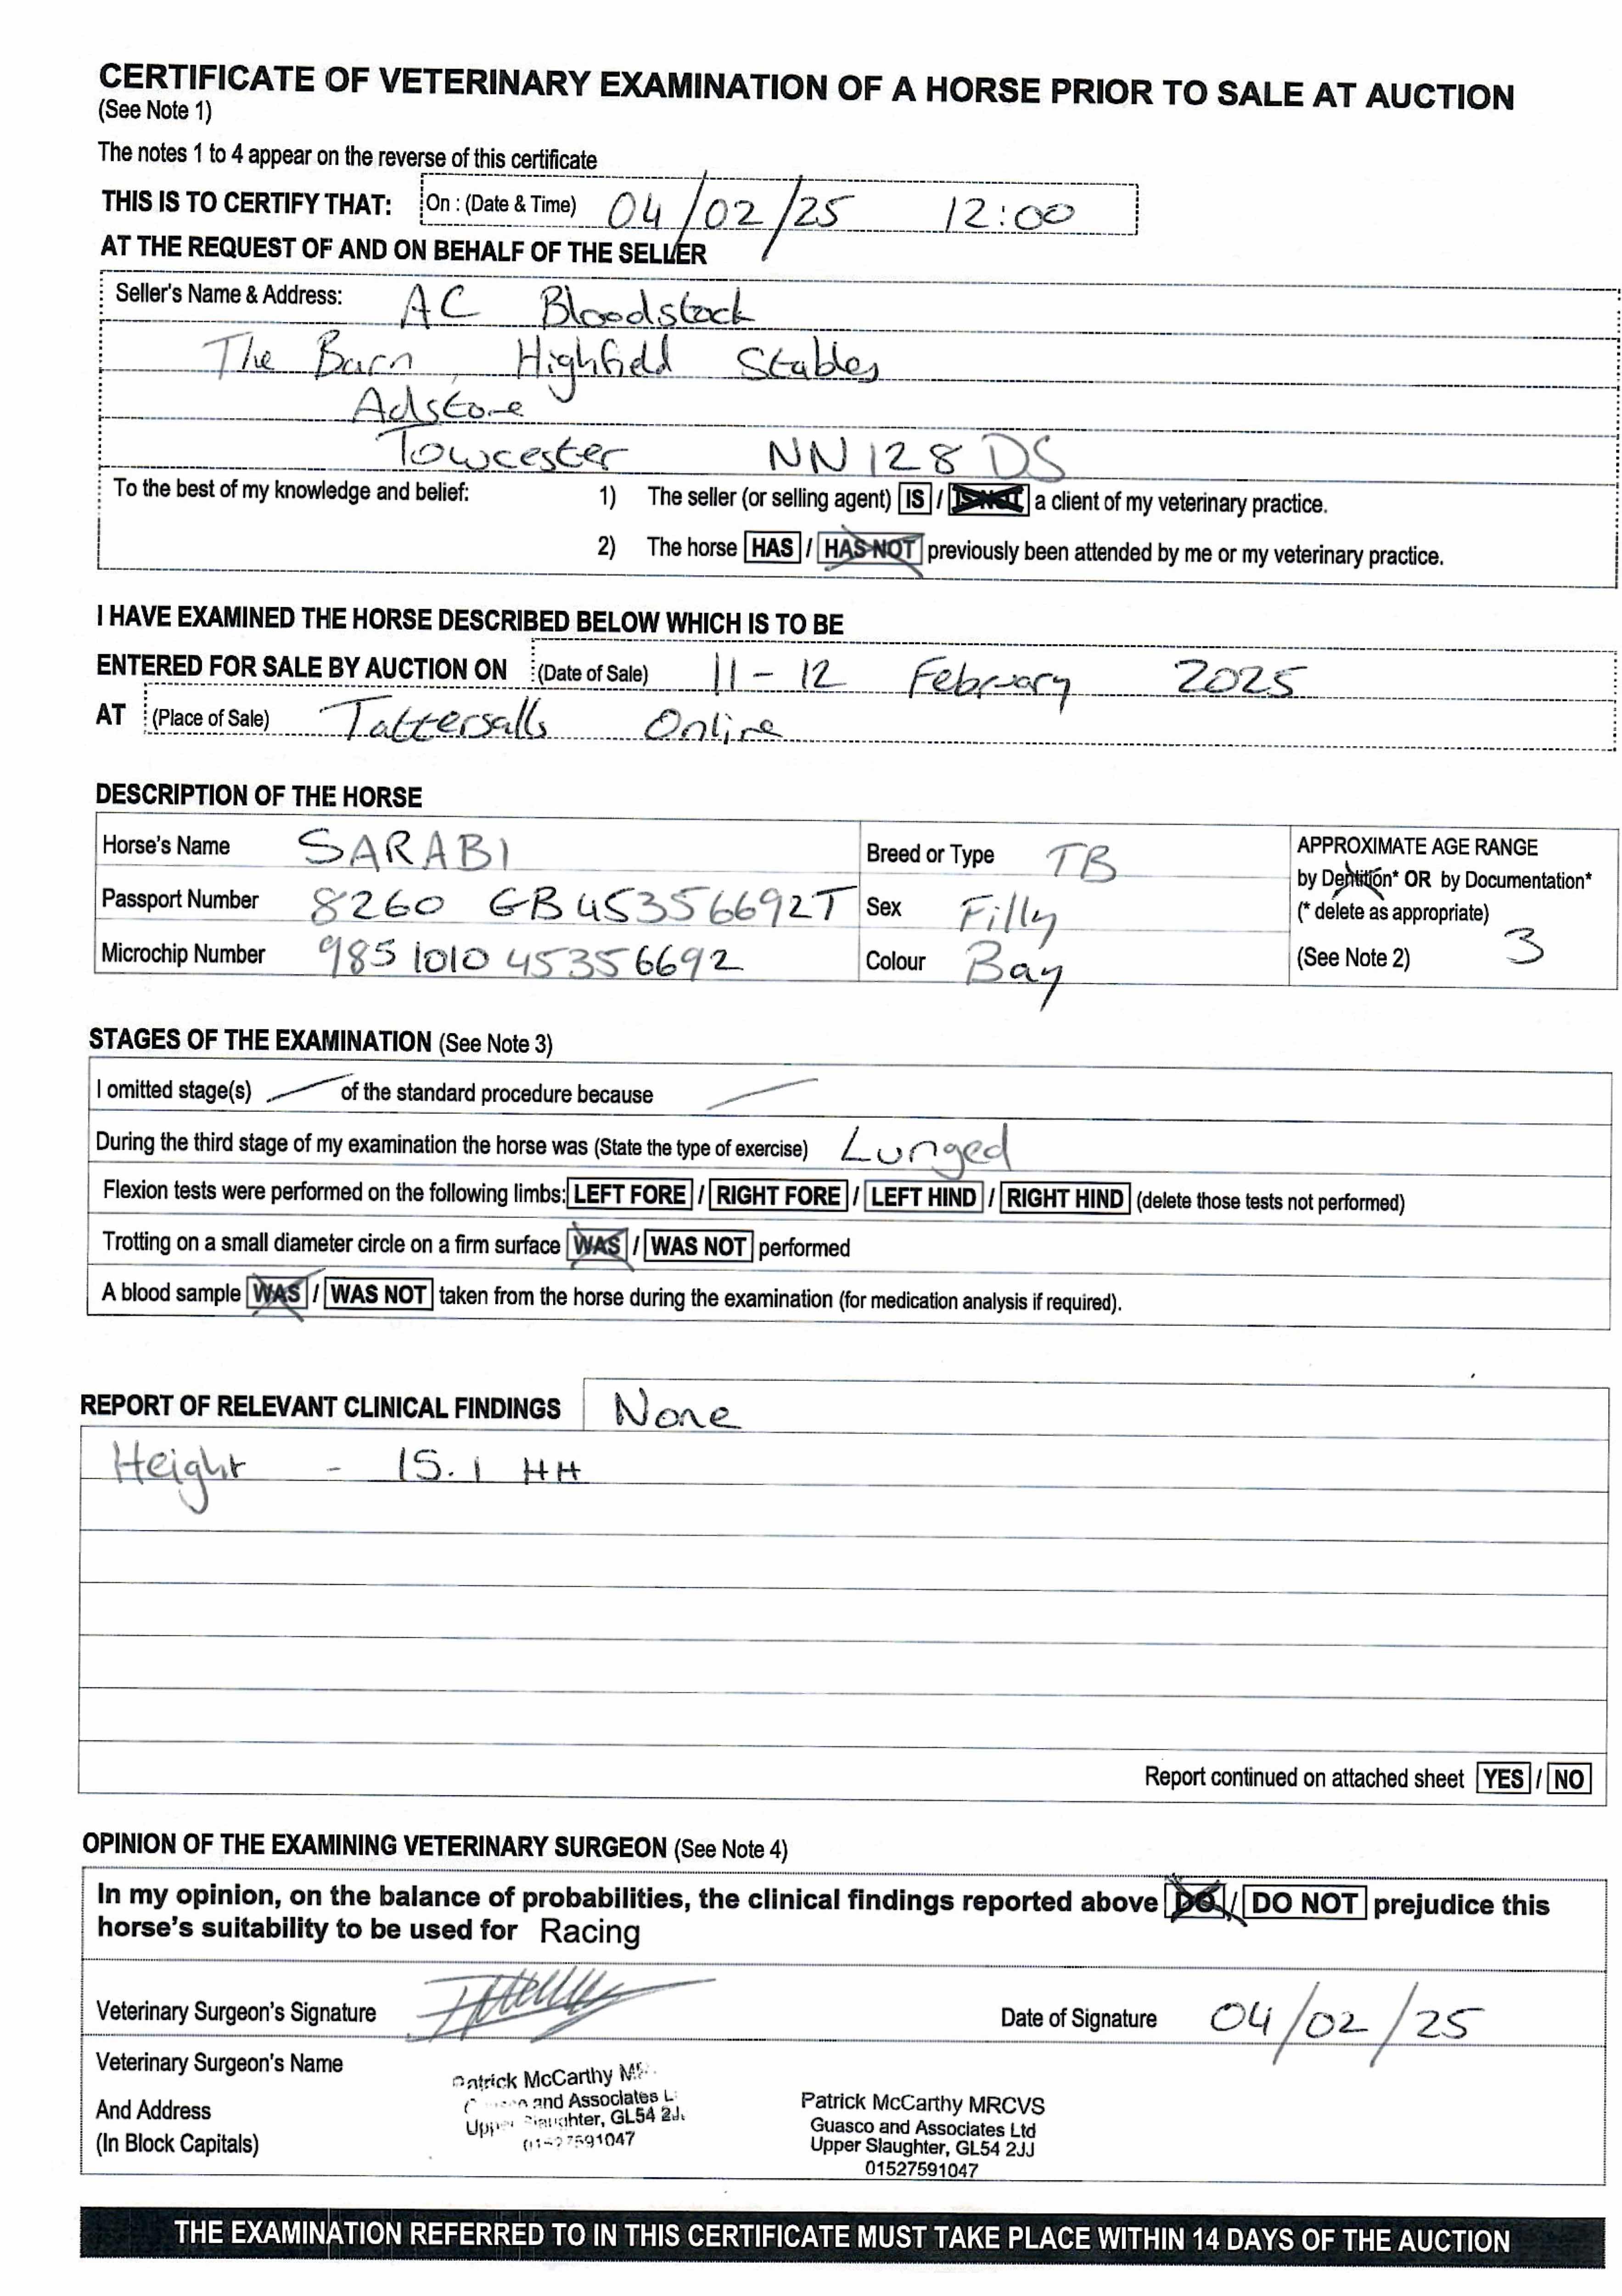 CERTIFICATE OF VETERINARY EXAMINATION OF A HORSE PRIOR TO SALE AT AUCTION
(See Note 1)
The notes 1 to 4 appear on the reverse of this certificate
THIS IS TO CERTIFY THAT: On : (Date & Time) 04/02/25 12:00
AT THE REQUEST OF AND ON BEHALF OF THE SELLER
Seller's Name & Address: AC Bloodstock
The Barn, Highfield Stables
Adstone
Towcester NN12 8DS
To the best of my knowledge and belief: 1) The seller (or selling agent) IS / IS NOT a client of my veterinary practice.
2) The horse HAS / HAS NOT previously been attended by me or my veterinary practice.
I HAVE EXAMINED THE HORSE DESCRIBED BELOW WHICH IS TO BE
ENTERED FOR SALE BY AUCTION ON (Date of Sale) 11 - 12 February 2025
AT (Place of Sale) Tattersalls Online
DESCRIPTION OF THE HORSE
Horse's Name SARABI Breed or Type TB APPROXIMATE AGE RANGE
by Dentition* OR by Documentation*
Passport Number 8260 GB45356692T Sex Filly (* delete as appropriate)
Microchip Number 985 1010 45356692 Colour Bay (See Note 2) 3
STAGES OF THE EXAMINATION (See Note 3)
I omitted stage(s) of the standard procedure because
During the third stage of my examination the horse was (State the type of exercise) Lunged
Flexion tests were performed on the following limbs: LEFT FORE / RIGHT FORE / LEFT HIND / RIGHT HIND (delete those tests not performed)
Trotting on a small diameter circle on a firm surface WAS / WAS NOT performed
A blood sample WAS / WAS NOT taken from the horse during the examination (for medication analysis if required).
REPORT OF RELEVANT CLINICAL FINDINGS None
Height - 15.1 HH
Report continued on attached sheet YES / NO
OPINION OF THE EXAMINING VETERINARY SURGEON (See Note 4)
In my opinion, on the balance of probabilities, the clinical findings reported above DO / DO NOT prejudice this
horse's suitability to be used for Racing
Veterinary Surgeon's Signature Date of Signature 04/02/25
Veterinary Surgeon's Name
And Address
(In Block Capitals)
Patrick McCarthy
and Associates
Upper Slaughter, GL54 2J
01527591047
Patrick McCarthy MRCVS
Guasco and Associates Ltd
Upper Slaughter, GL54 2JJ
01527591047
THE EXAMINATION REFERRED TO IN THIS CERTIFICATE MUST TAKE PLACE WITHIN 14 DAYS OF THE AUCTION